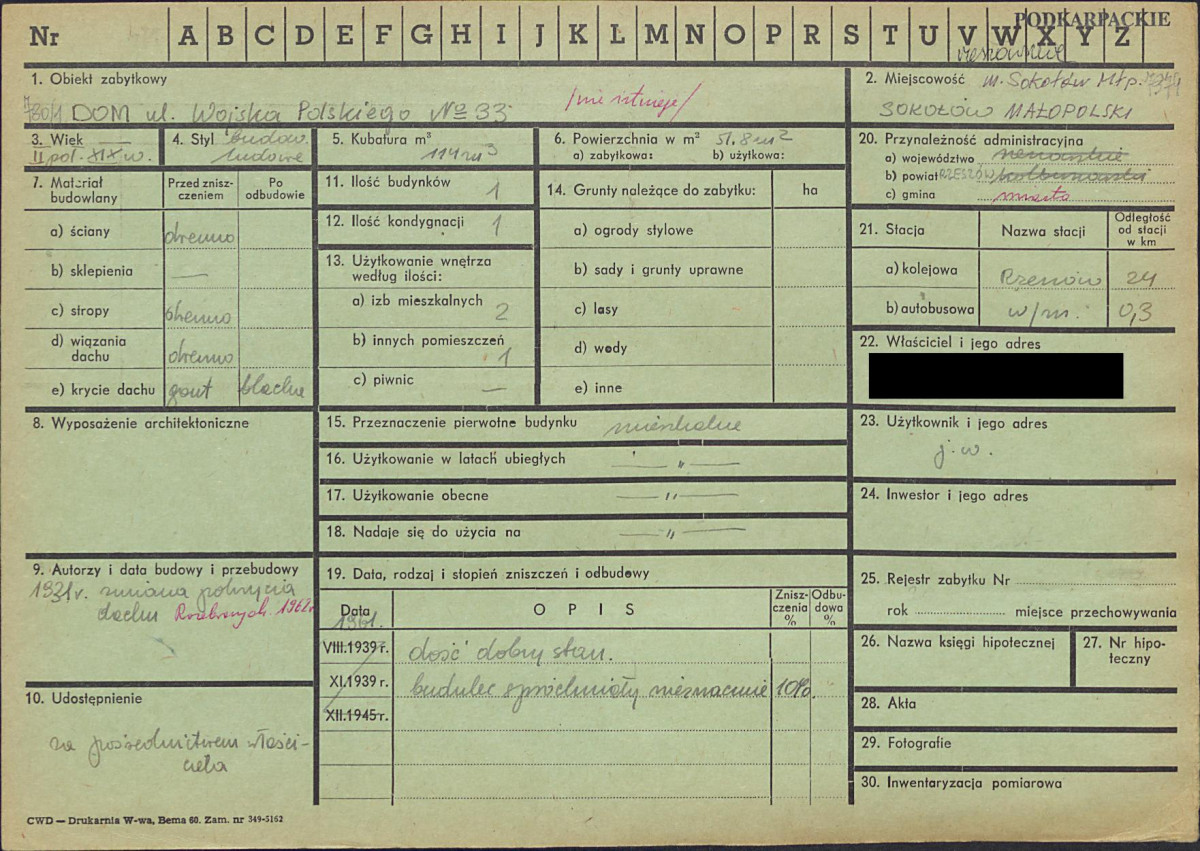 PODKARPACKIE
Nr A B C D E F G H I J K L M N O P R S T U V W X Y Z
rzeszowskie
1. Obiekt zabytkowy
DOM ul. Wojska Polskiego No 33
/nie istnieje/
2. Miejscowość m. Sokołów Młp.
SOKOŁÓW MAŁOPOLSKI
3. Wiek
II poł. XIX w.
4. Styl budow.
ludowe
5. Kubatura m³
114 m³
6. Powierzchnia w m² 51.8 m²
a) zabytkowa: b) użytkowa:
7. Materiał budowlany
Przed zniszczeniem
Po odbudowie
a) ściany drewno
b) sklepienia —
c) stropy drewno
d) wiązania dachu drewno
e) krycie dachu gont blacha
8. Wyposażenie architektoniczne
9. Autorzy i data budowy i przebudowy
1931 r. zmiana pokrycia
dachu Rozebrany 1962 r.
10. Udostępnienie
za pośrednictwem właści-
ciela
11. Ilość budynków 1
12. Ilość kondygnacji 1
13. Użytkowanie wnętrza
według ilości:
a) izb mieszkalnych
2
b) innych pomieszczeń
1
c) piwnic —
14. Grunty należące do zabytku: ha
a) ogrody stylowe
b) sady i grunty uprawne
c) lasy
d) wody
e) inne
15. Przeznaczenie pierwotne budynku mieszkalne
16. Użytkowanie w latach ubiegłych — „ —
17. Użytkowanie obecne — „ —
18. Nadaje się do użycia na — „ —
19. Data, rodzaj i stopień zniszczeń i odbudowy
Data O P I S Zniszczenia % Odbudowa %
1961.
VIII.1939 r. dość dobry stan.
XI.1939 r. budulec spróchniały nieznacznie 10%.
XII.1945 r.
20. Przynależność administracyjna
a) województwo rzeszowskie
b) powiat RZESZÓW kolbuszowski
c) gmina miasto
21. Stacja Nazwa stacji Odległość od stacji w km
a) kolejowa Rzeszów 24
b) autobusowa w/m. 0,3
22. Właściciel i jego adres
23. Użytkownik i jego adres
j. w.
24. Inwestor i jego adres
25. Rejestr zabytku Nr
rok miejsce przechowywania
26. Nazwa księgi hipotecznej
27. Nr hipo-
teczny
28. Akta
29. Fotografie
30. Inwentaryzacja pomiarowa
CWD — Drukarnia W-wa, Bema 60. Zam. nr 349-5162